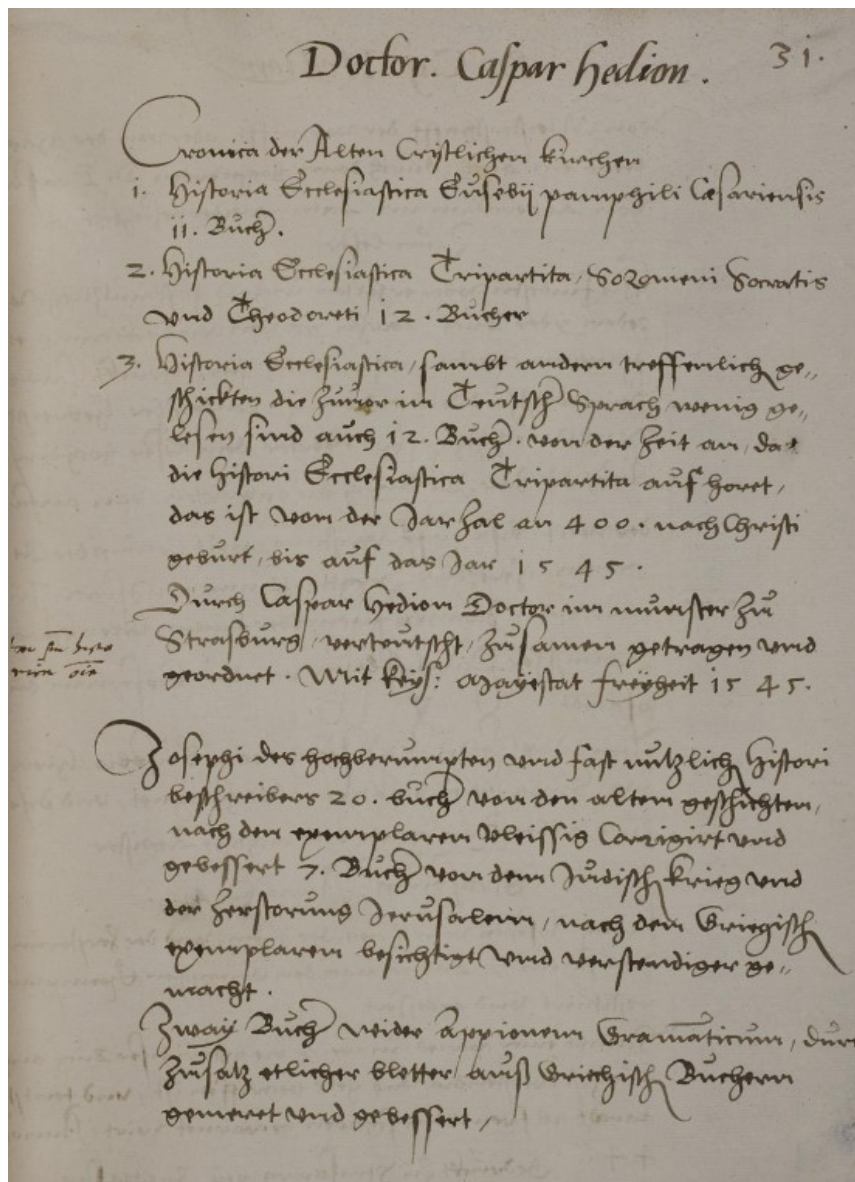 Doctor. Caspar Hedion.
31.
Cronica der Alten Cristlichen kirchen
1. Historia Ecclesiastica Eusebij pamphili Cæsariensis
11. Buch.
2. Historia Ecclesiastica Tripartita, Sozomeni Socratis
vnd Theodoreti 12. Bucher
3. Historia Ecclesiastica, sambt andern treffenlich ge„
schickten die zuuor in Teutsch Sprach wenig ge„
lesen sind auch 12. Buch. von der zeit an, da
die histori Ecclesiastica Tripartita auf horet,
das ist von der Jarzal an 400. nach Christi
geburt, bis auf das Jar 1545.
Durch Caspar Hedion Doctor im munster zu
Strasburg, verteutscht, zusamen getragen vnd
geordnet. Mit keys: Mayestat freyheit 1545.
Josephi des hochberumpten vnd fast nutzlich histori
beschreibers 20. buch von den alten geschichten,
nach den exemplaren vleissig Corrigirt vnd
gebessert 7. Buch von dem Judisch krieg vnd
der zerstorung Jerusalem, nach den Griegisch
exemplaren besichtigt vnd verstendiger ge„
macht.
Zway Buch wider Appionem Gramaticum, dur
zusatz etlicher bletter auß Griechisch Buchern
gemeret vnd gebessert,